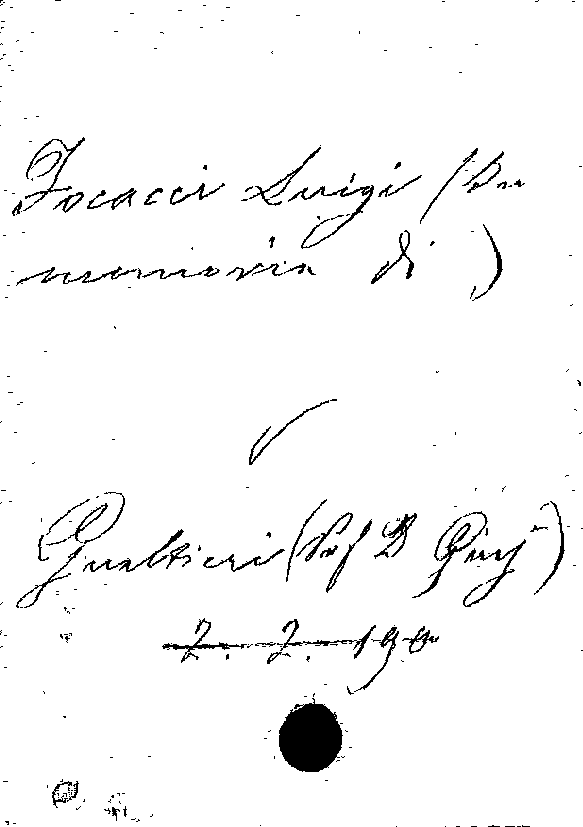 Focacci Luigi (In
memoria di)
Gualtieri (Prof D Giu)
2. 2. 190